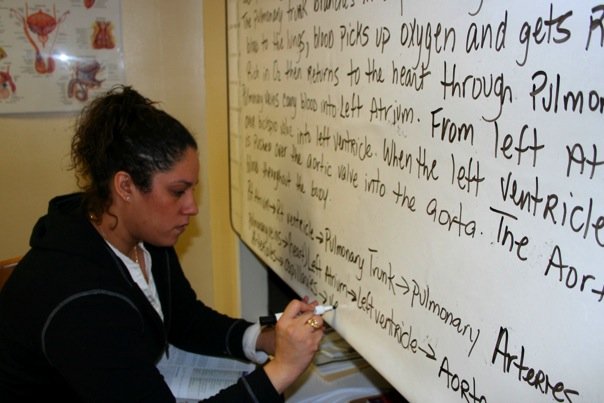 The Pulmonary trunk branches
blood to the lungs, blood picks up oxygen and gets R
Rich in O2 then returns to the heart through Pulmon
Pulmonary veins carry blood into Left Atrium. From left At
valve into left ventricle. When the left ventricle
is pushes over the aortic valve into the aorta. The Aort
blood throughout the body.
Rt Atrium → Rt ventricle → Pulmonary Trunk → Pulmonary Arteries
Pulmonary veins → (heart) Left Atrium → left ventricle → Aorta
Arterioles → capillaries →